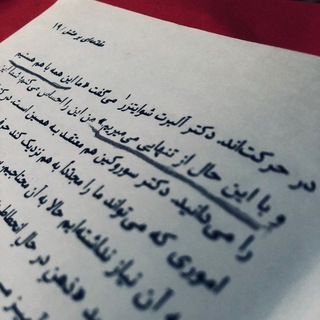 ۱۹/ فقیدی بر عشق
در حرکت‌اند. دکتر آلبرت شوایتزر می‌گفت «ما این همه با هم هستیم
و با این حال از تنهایی می‌میریم» من این را احساس می‌کنم شما
را می‌دانید. دکتر سوروکین هم معتقد به همین است
اموری که می‌تواند ما را مجدداً به هم نزدیک کند
به آن نیاز نداشته‌ایم حالا به آن محتاجیم
«ذهن در حال انحطاط